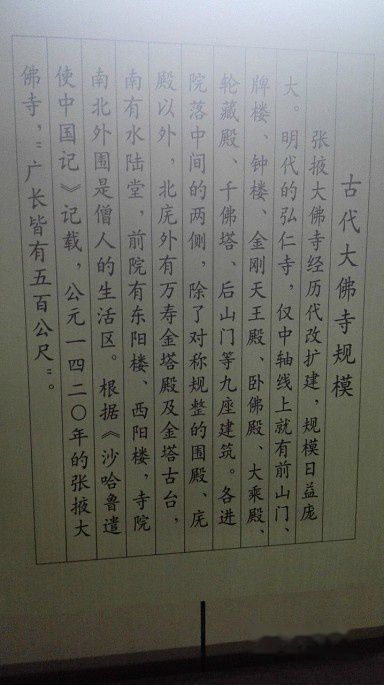 古代大佛寺规模
张掖大佛寺经历代改扩建，规模日益庞
大。明代的弘仁寺，仅中轴线上就有前山门、
牌楼、钟楼、金刚天王殿、卧佛殿、大乘殿、
轮藏殿、千佛塔、后山门等九座建筑。各进
院落中间的两侧，除了对称规整的围殿、庑
殿以外，北庑外有万寿金塔殿及金塔古台，
南有水陆堂，前院有东阳楼、西阳楼，寺院
南北外围是僧人的生活区。根据《沙哈鲁遣
使中国记》记载，公元一四二〇年的张掖大
佛寺，“广长皆有五百公尺”。